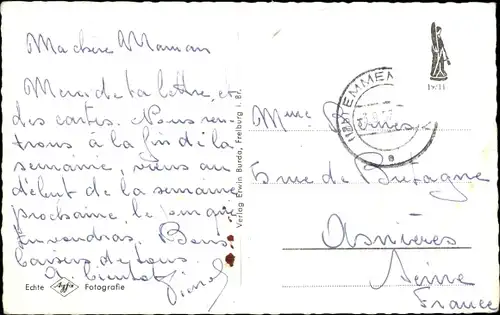 Ma chère Maman
Merci de ta lettre, et
des cartes. Nous ren-
trons à la fin de la
semaine, viens au
début de la semaine
prochaine, le jour que
tu voudras. Bons
baisers de tous.
A bientôt
Echte Agfa Fotografie
Verlag Erwin Burda, Freiburg i. Br.
EMMEN
Mme
rue de Bretagne
Asnières
Seine
France